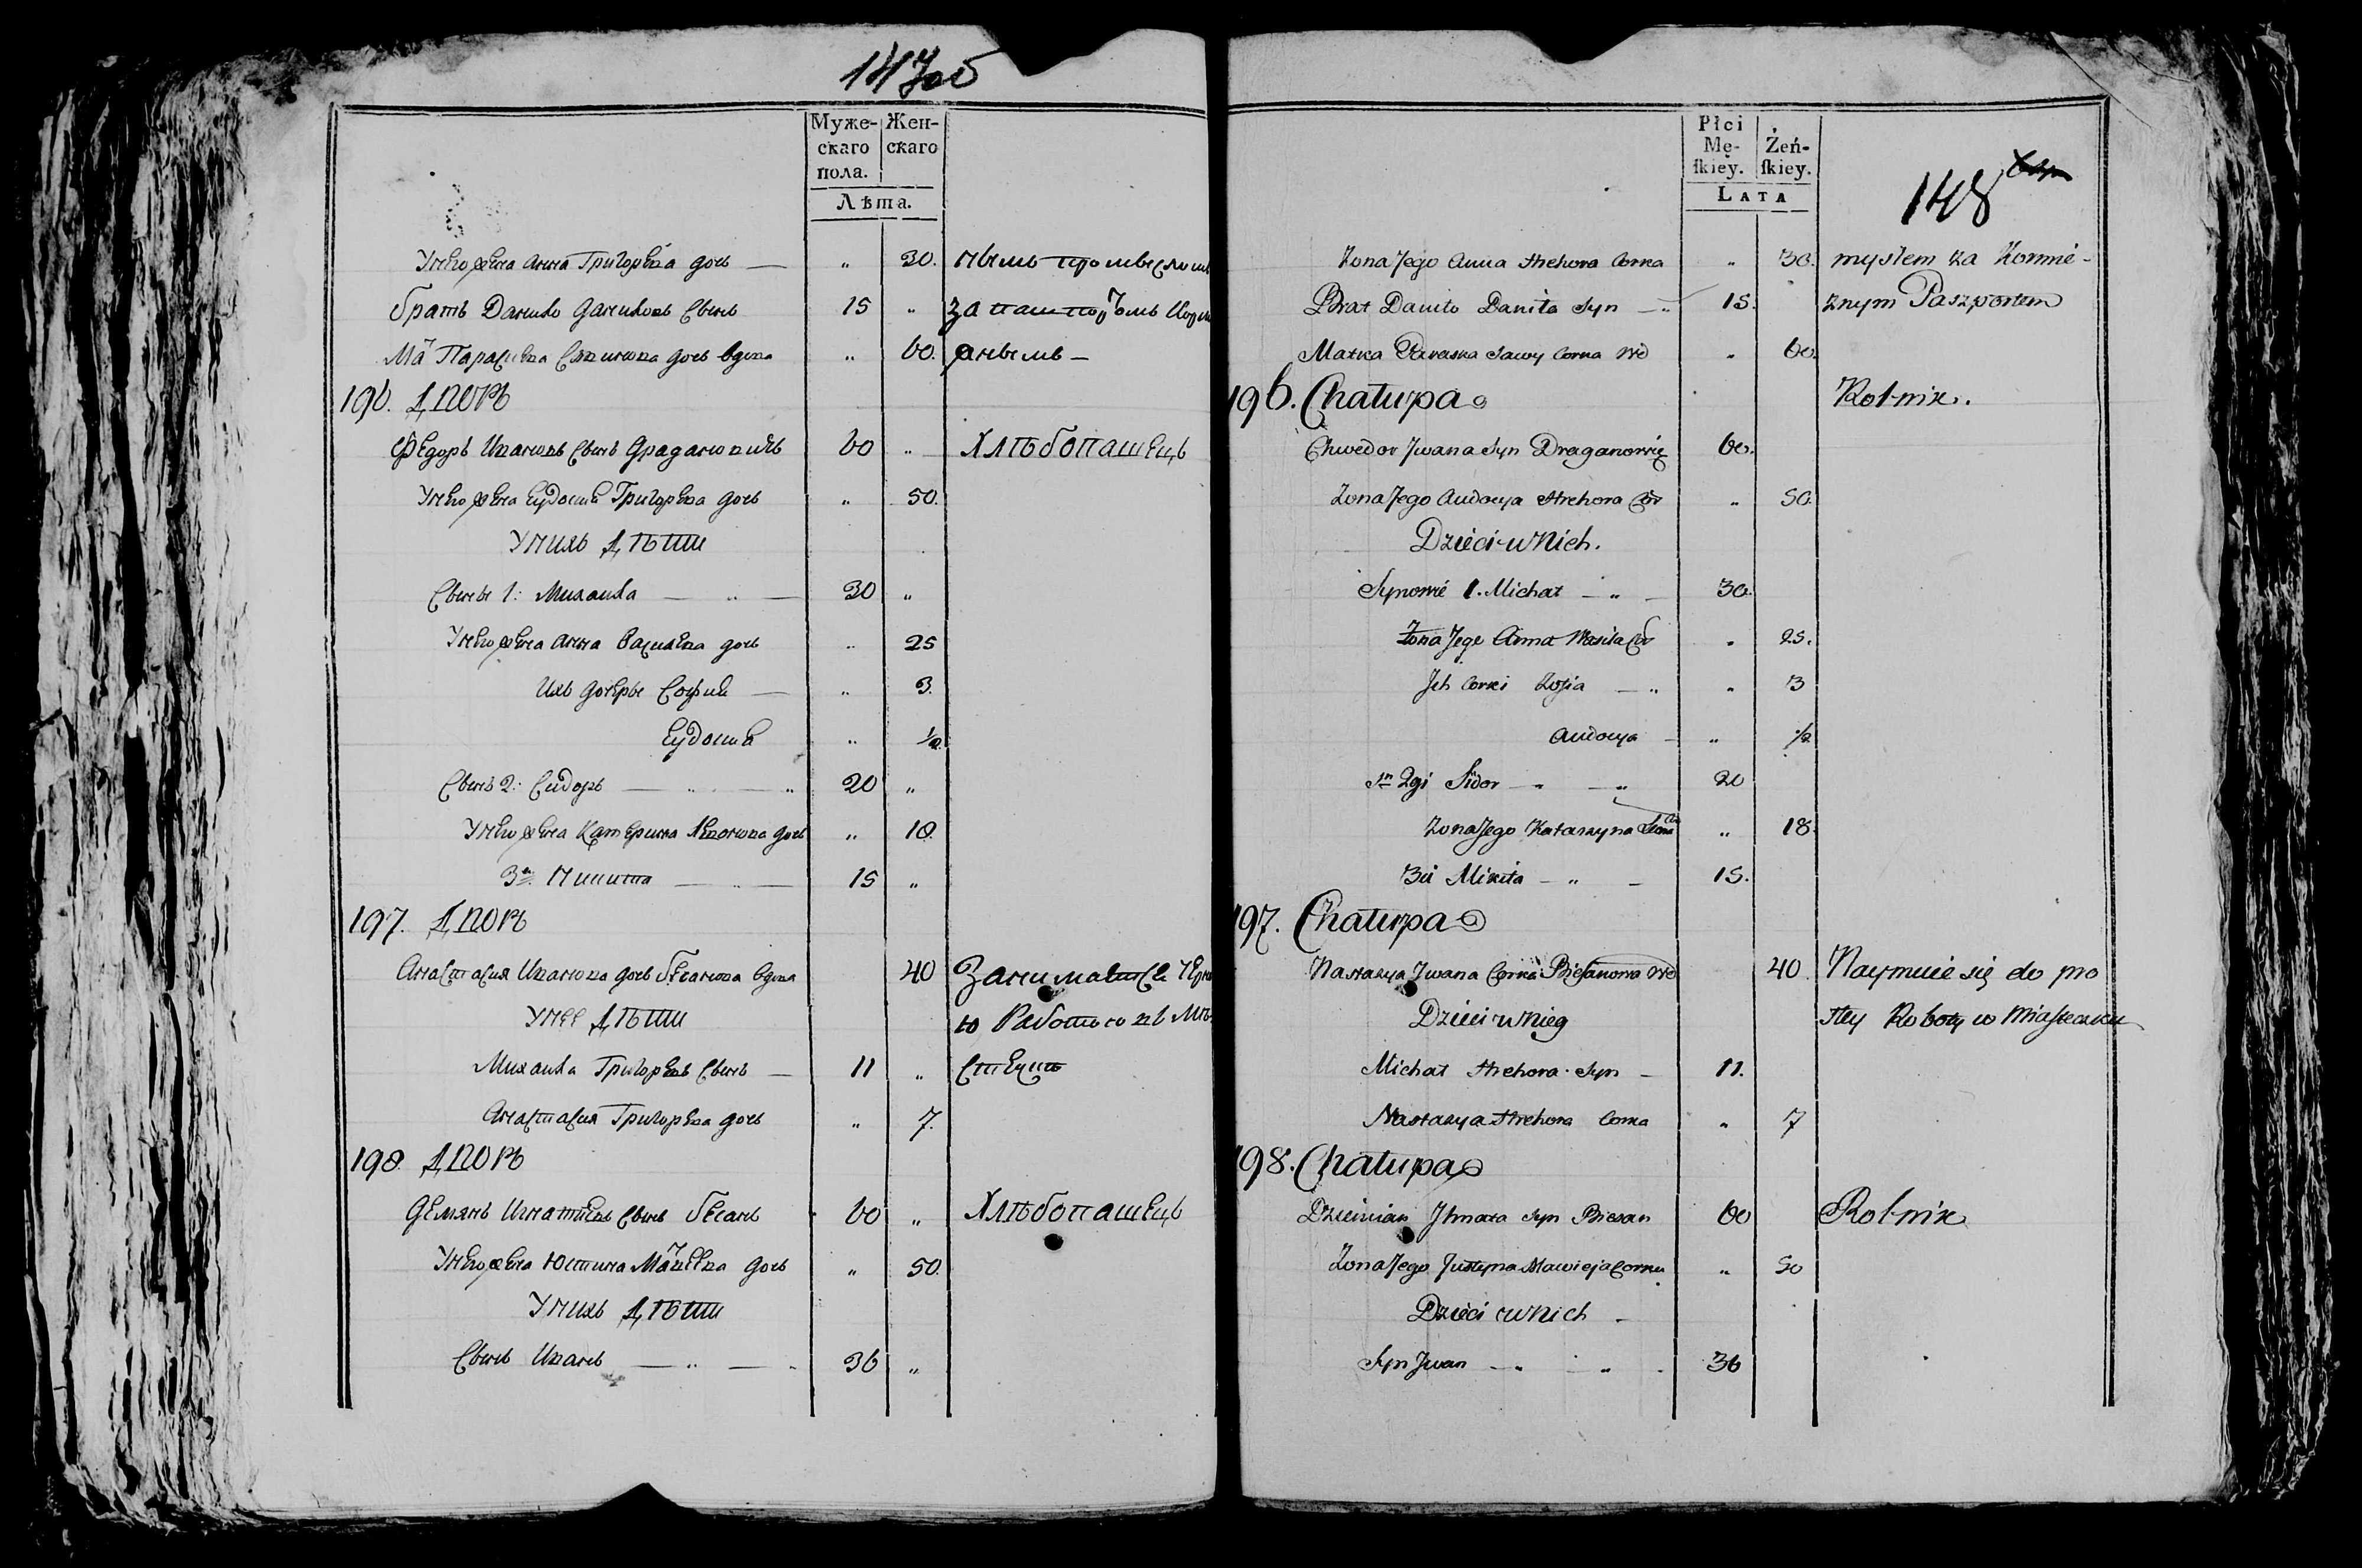 147об
Муже-
скаго
пола.
Жен-
скаго
Лѣта.
У него жена Анна Григорьева дочь — „ 30.
Братъ Данило Даниловъ сынъ 15 „ за пашпортомъ
Мать Параскева дочь вдова „ 60.
196. Дворъ
Федоръ Ивановъ сынъ Драгановичъ 60 „ Хлѣбопашецъ
У него жена Еудокия Григорьева дочь „ 50.
У нихъ дѣти
Сыны 1: Михайла — „ — 30 „
У него жена Анна Васильева дочь „ 25
Ихъ дочеры София — „ 3.
Еудокия „ 1/2
Сынъ 2: Сидоръ — „ — „ 20 „
У него жена Катерина дочь „ 18
3й Микита — „ — 15 „
197. Дворъ
Анастасия Иванова дочь вдова 40
У нее дѣти работою въ
Михайла Григорьевъ сынъ — 11 „
Анастасия Григорьева дочь „ 7.
198 Дворъ
Демянъ Игнатиевъ сынъ Бесанъ 60 „ Хлѣбопашецъ
У него жена Юстина дочь „ 50.
У нихъ дѣти
Сынъ Иванъ — „ — 36 „
Płci
Mę-
ſkiey.
Żeń-
ſkiey.
LATA
148
Żona Jego Anna Hrehora Corka „ 30. mysłem za Kormie-
Brat Daniło Daniła Syn — „ 15. znym Paszportem
Matka Paraska Sawy Corka Wd „ 60.
196. Chałupa Rolnik.
Chwedor Jwana Syn Draganowicz 60.
Żona Jego Audocya Hrehora Cor „ 50.
Dzieci w Nich.
Synowie 1. Michał — „ — 30.
Żona Jego Anna Wasila Cor „ 25.
Jch Corki Zofia — „ „ 3
Audocya — „ 1/2
Sn 2gi Sidor — „ — „ 20
Żona Jego Katarzyna „ 18.
3ci Mikita — „ — 15.
197. Chałupa
Nastazya Jwana Corka Biesanowa Wd 40. Naymuie się do pro
Dzieci w Niey stey Roboty w Miasteczku
Michał Hrehora Syn — 11.
Nastazya Hrehora Corka „ 7
198. Chałupa
Dziemian Jhnata Syn Biesan 60 Rolnik
Żona Jego Justyna Macieja Corka „ 50
Dzieci w Nich
Syn Jwan — „ „ 36